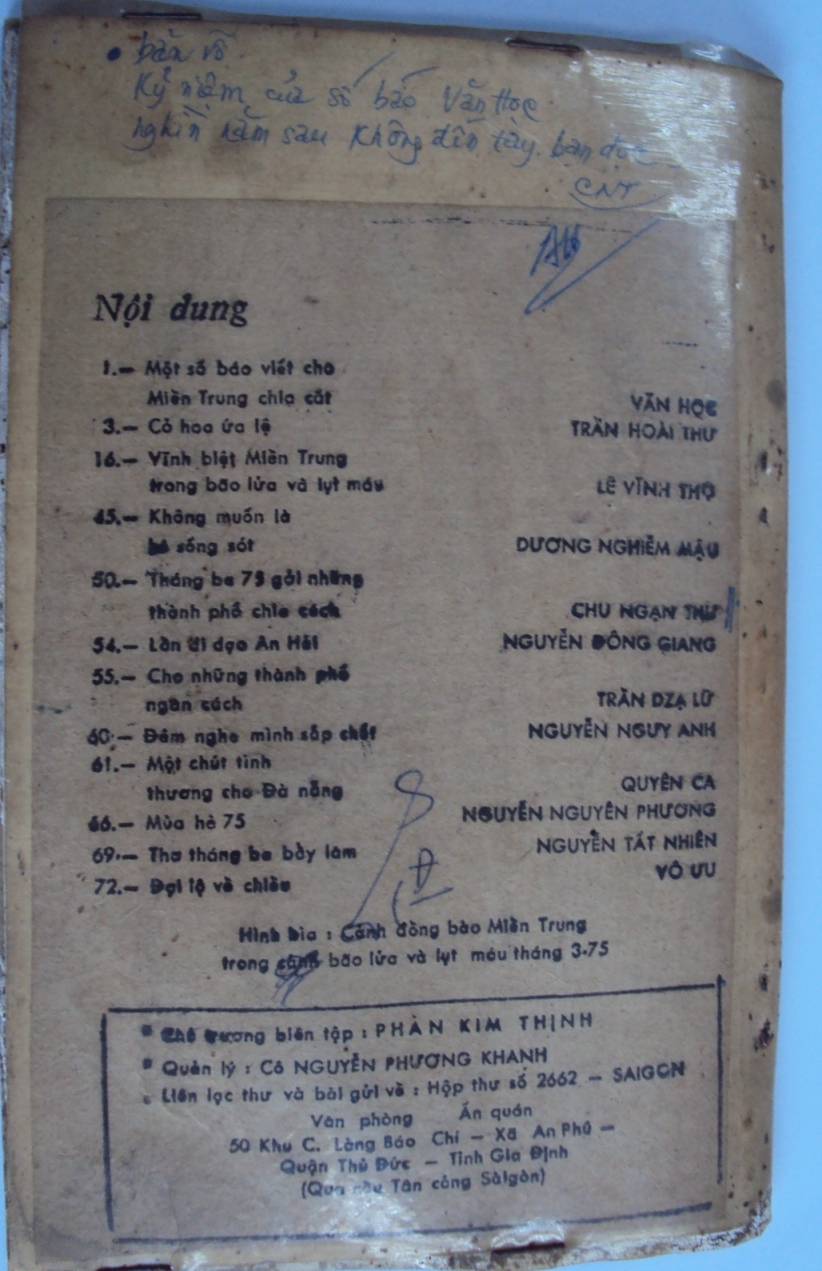 • bản vỗ
Kỷ niệm của số báo Văn Học
nghìn năm sau không đến tay bạn đọc
CNT
Nội dung
1.— Một số báo viết cho
Miền Trung chia cắt VĂN HỌC
3.— Cỏ hoa ứa lệ TRẦN HOÀI THƯ
16.— Vĩnh biệt Miền Trung
trong bão lửa và lụt máu LÊ VĨNH THỌ
45.— Không muốn là
kẻ sống sót DƯƠNG NGHIỄM MẬU
50.— Tháng ba 75 gởi những
thành phố chia cách CHU NGẠN THƯ
54.— Lần đi dạo An Hải NGUYỄN ĐÔNG GIANG
55.— Cho những thành phố
ngăn cách TRẦN DZẠ LỮ
60.— Đêm nghe mình sắp chết NGUYỄN NGUY ANH
61.— Một chút tình
thương cho Đà nẵng QUYÊN CA
66.— Mùa hè 75 NGUYỄN NGUYÊN PHƯƠNG
69.— Thơ tháng ba bảy lăm NGUYỄN TẤT NHIÊN
72.— Đại lộ về chiều VÔ ƯU
Hình bìa : Cảnh đồng bào Miền Trung
trong cảnh bão lửa và lụt máu tháng 3-75
▪ Chủ trương biên tập : PHAN KIM THỊNH
▪ Quản lý : Cô NGUYỄN PHƯƠNG KHANH
▪ Liên lạc thư và bài gửi về : Hộp thư số 2662 — SAIGON
Văn phòng Ấn quán
50 Khu C. Làng Báo Chí — Xã An Phú —
Quận Thủ Đức — Tỉnh Gia Định
(Qua cầu Tân cảng Sàigòn)